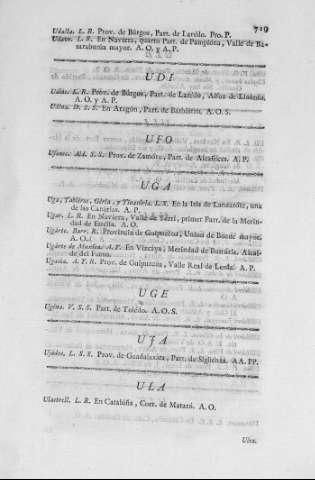 719
Udalla. L. R. Prov. de Búrgos, Part. de Larédo. Pro. P.
Udave. L. R. En Navarra, quarto Part. de Pamplona, Valle de Ba-
saraburúa mayor. A. O. y A. P.
UDI
L. R. Prov. de Búrgos, Part. de Larédo,
A. O. y A. P.
D. S. S. En Aragón, Part. de Barbástro. A. O. S.
UFO
Ufones. Ald. S. S. Prov. de Zamóra, Part. de Alcañíces. A. P.
UGA
Uga, En la Isla de Lanzaróte, una
de las Canarias. A. P.
Ugar. L. R. En Navarra, Valle de Yerri, primer Part. de la Merin-
dad de Estélla. A. O.
Ugárte. Barr. R. Provincia de Guipuzcoa, Union de
A. O.
Ugárte de Muxíca. A. Y. En Vizcaya, Merindad de Busturia. Alcal-
de del Fuero.
A. Y R. Prov. de Guipuzcoa, Valle Real de A. P.
UGE
Ugéna. V. S. S. Part. de Tolédo. A. O. S.
UJA
Ujádos. L. S. S. Prov. de Guadalaxára, Part. de Sigüenza. AA. PP.
ULA
Ulastrell. L. R. En Cataluña, Corr. de Mataró. A. O.